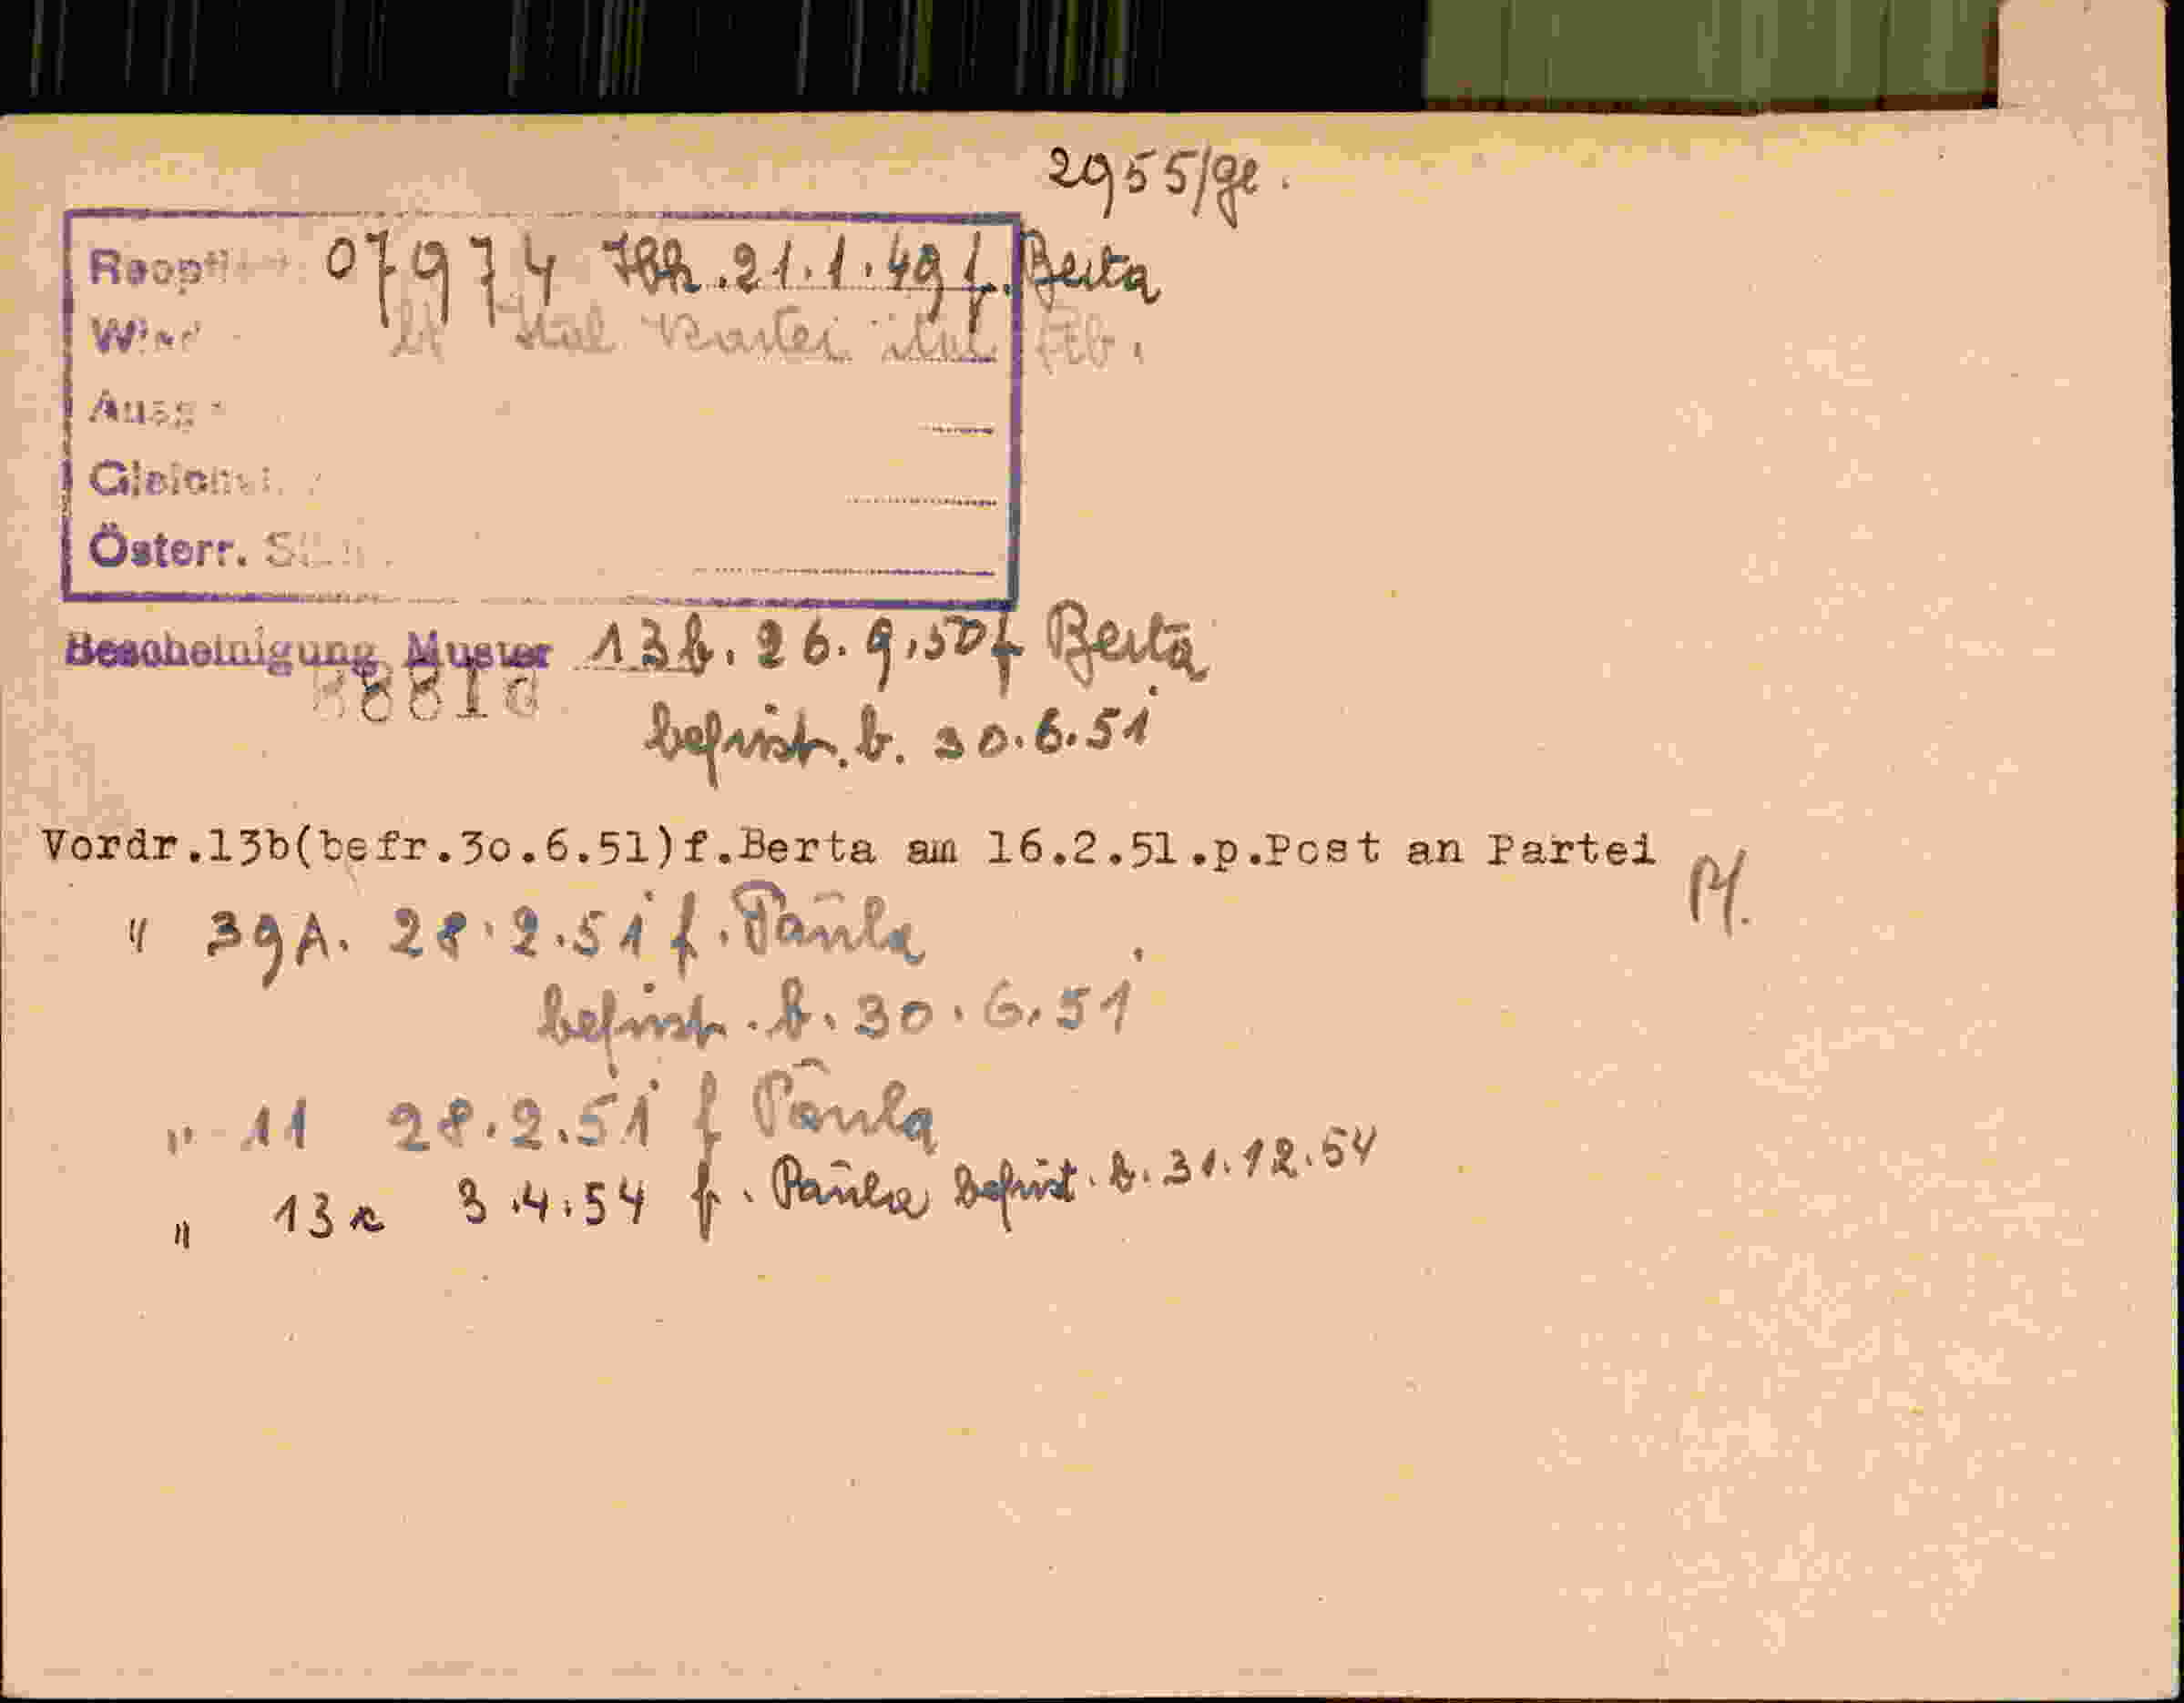 2955/ge.
07974 21.1.49 f. Berta
lt Kartei
Österr.
Bescheinigung Muster 13b. 26.9.50 f Berta
befrist. b. 30.6.51
Vordr.13b(befr.30.6.51)f.Berta am 16.2.51.p.Post an Partei
" 39A. 28.2.51 f. Paula
befrist. b. 30.6.51
" 11 28.2.51 f Paula
" 13a 3.4.54 f. Paula befrist. b. 31.12.54